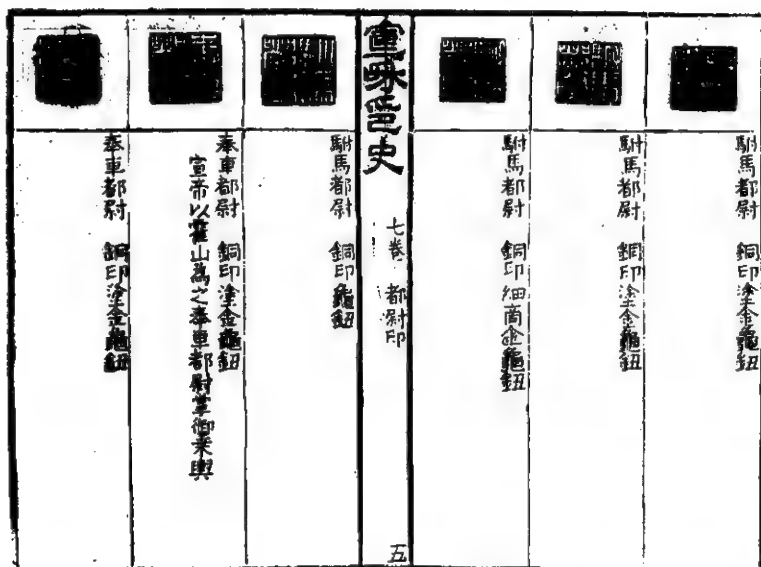 駙馬都尉　銅印塗金龜鈕
駙馬都尉　銅印塗金龜鈕
駙馬都尉　銅印細商金龜鈕
宣和印史　七卷　都尉印　五
駙馬都尉　銅印龜鈕
奉車都尉　銅印塗金龜鈕
宣帝以霍山為之奉車都尉掌御乘輿
奉車都尉　銅印塗金龜鈕